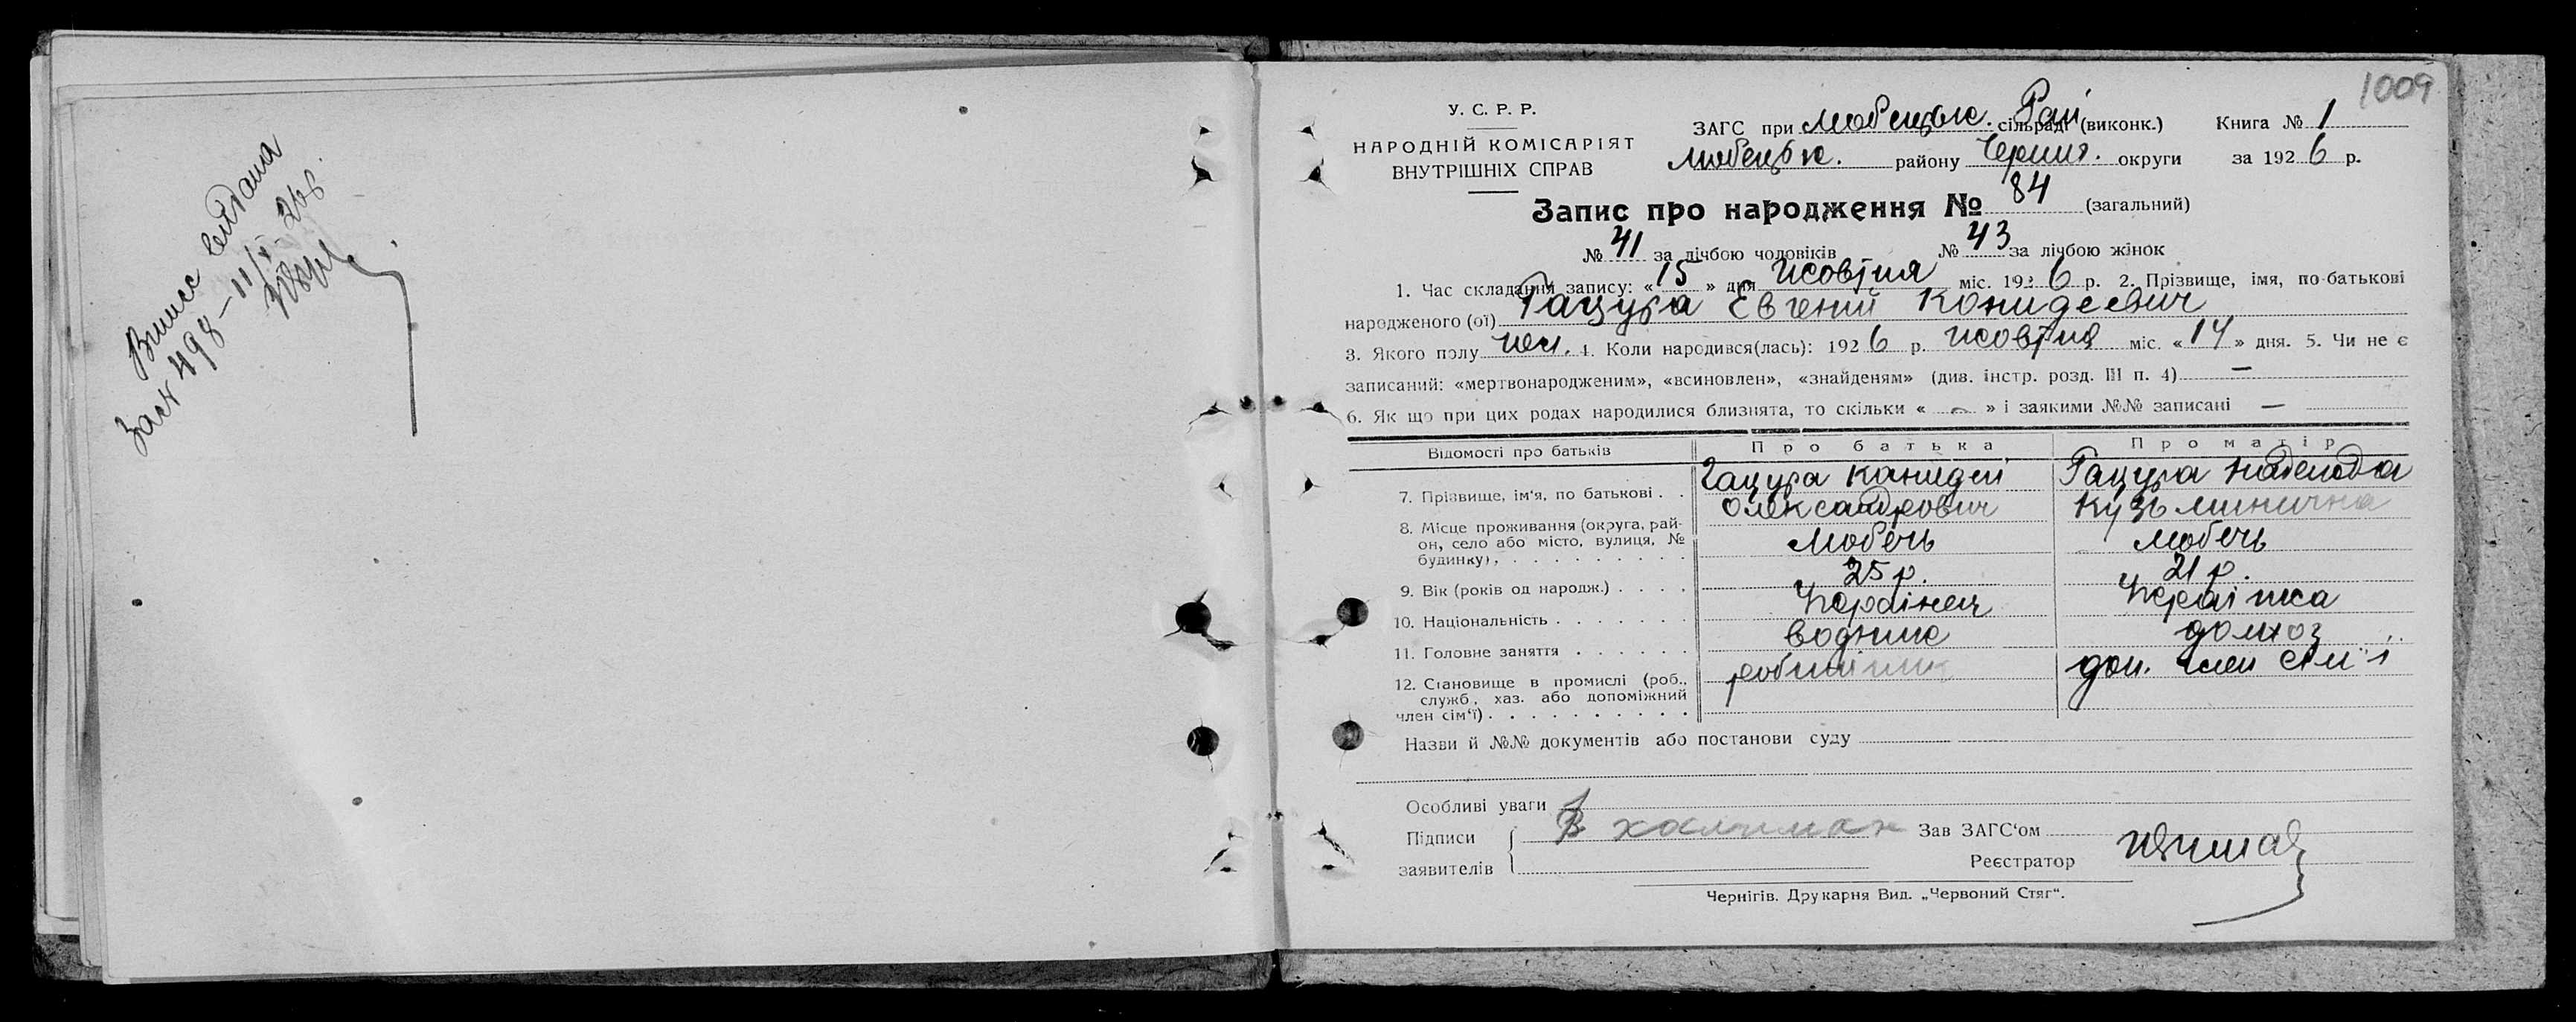 Випис видана
Зает 498 — 11/X 26 р.
1009
У. С. Р. Р.
НАРОДНІЙ КОМІСАРІЯТ
ВНУТРІШНІХ СПРАВ
ЗАГС при Любецьк. Рай сільраді (виконк.) Книга № 1
Любецьк. району Черниг. округи за 1926 р.
Запис про народження № 84 (загальний)
№ 41 за лічбою чоловіків № 43 за лічбою жінок
1. Час складання запису: « 15 » дня Жовтня міс. 1926 р. 2. Прізвище, імя, по-батькові
народженого (ої) Гацура Евгений Конидеевич
3. Якого полу чол. 4. Коли народився(лась): 1926 р. Жовтня міс. « 14 » дня. 5. Чи не є
записаний: «мертвонародженим», «всиновлен», «знайденям» (див. інстр. розд. III п. 4) —
6. Як що при цих родах народилися близнята, то скільки « — » і заякими №№ записані —
Відомості про батьків Про батька Про матір
7. Прізвище, ім'я, по батькові . . Гацура Канидей Олександрович Гацура Надежда Кузьминична
8. Місце проживання (округа, рай-
он, село або місто, вулиця, №
будинку), . . . . . . . . . Любечь Любечь
9. Вік (років од народж.) . . . . 25 р. 21 р.
10. Національність . . . . . . . Українец Українка
11. Головне заняття . . . . . . водник домхоз
12. Становище в промислі (роб.,
служб, хаз. або допоміжний
член сім'ї) . . . . . . . . . . робітник доп. член сім'ї
Назви й №№ документів або постанови суду
Особливі уваги
Підписи
заявителів
Зав ЗАГС'ом
Реєстратор
Чернігів. Друкарня Вид. „Червоний Стяг".